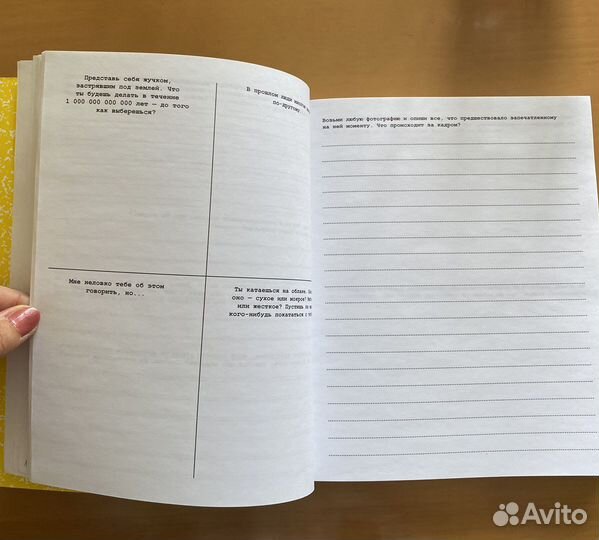 Представь себя жучком,
застрявшим под землей. Что
ты будешь делать в течение
1 000 000 000 000 лет — до того
как выберешься?
В прошлом люди
по-другому
Мне неловко тебе об этом
говорить, но...
Ты катаешься на облаке.
оно — сухое или мокрое?
или жесткое? Пустишь ли
кого-нибудь покататься с
Возьми любую фотографию и опиши все, что предшествовало запечатленному
на ней моменту. Что происходит за кадром?
Avito